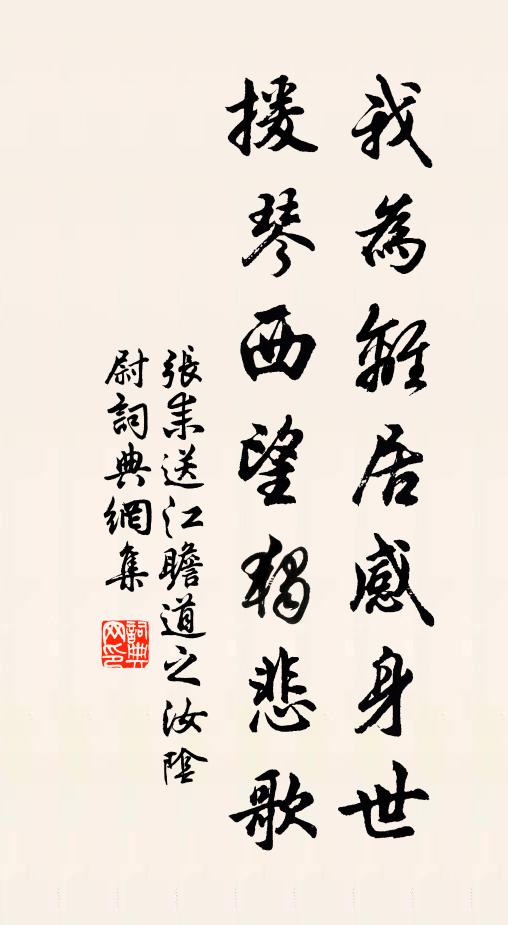 我為離居感身世
援琴西望獨悲歌
張耒送江瞻道之汝陰
尉詞典網集
詞典
网印